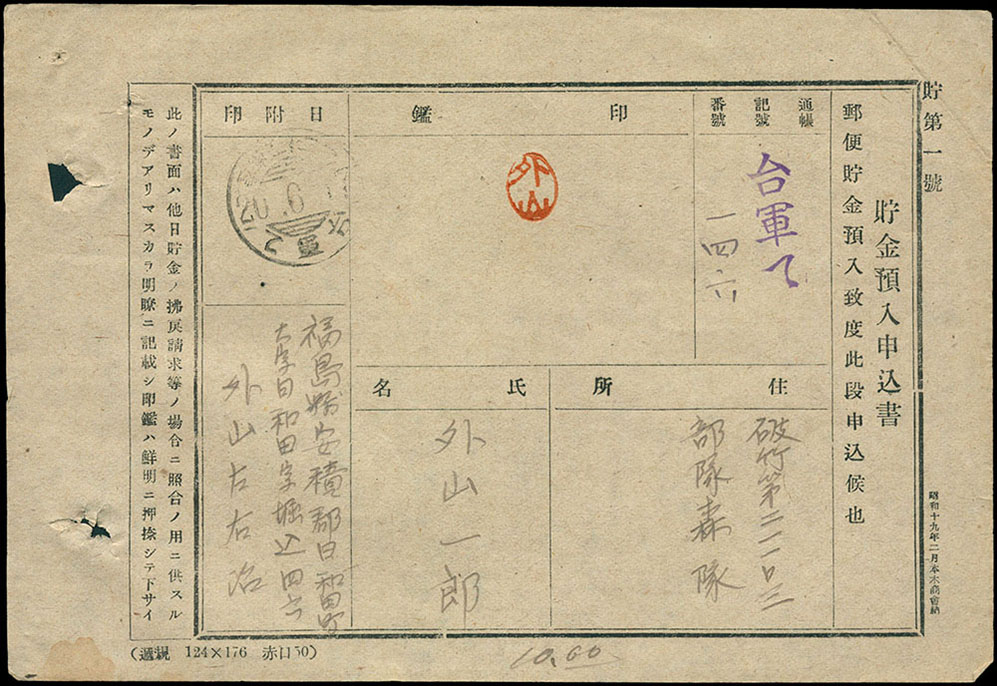 貯第一號
貯金預入申込書
郵便貯金預入致度此段申込候也
昭和十九年二月本木商會納
通帳
記號
番號
台軍て
一四六
印鑑
外山
日附印
20.6
住所
破竹第二一口三
部隊森隊
氏名
外山一郎
福島縣安積郡日和田町
大字日和田字堀込四六
外山右治
此ノ書面ハ他日貯金ノ拂戻請求等ノ場合ニ照合ノ用ニ供スル
モノデアリマスカラ明瞭ニ記載シ印鑑ハ鮮明ニ押捺シテ下サイ
(遞規 124×176 赤口50)
10.00